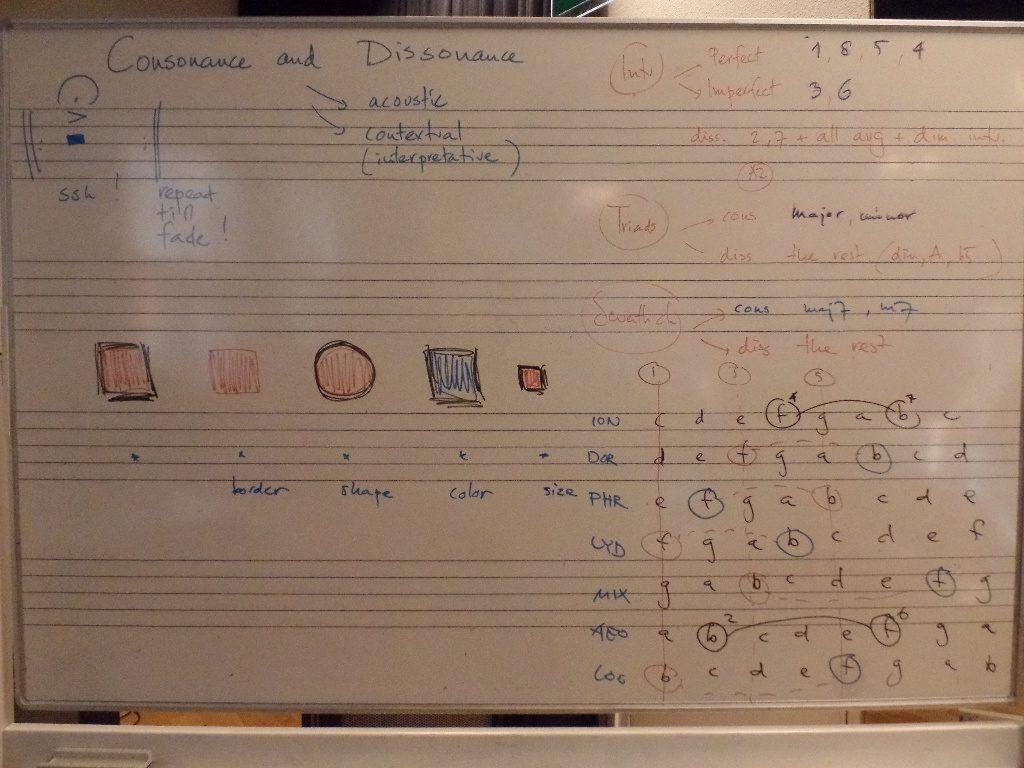 Consonance and Dissonance
acoustic
contextual
(interpretative)
ssh !
repeat
till
fade !
Intv
Perfect 1, 8, 5, 4
Imperfect 3, 6
diss. 2, 7 + all aug + dim. intv.
Triads
cons major, minor
diss the rest (dim, A, b5)
cons maj7, m7
diss the rest
1 3 5
ION c d e f 4 g a b 7 c
DOR d e f g a b c d
PHR e f g a b c d e
LYD f g a b c d e f
MIX g a b c d e f g
AEO a b 2 c d e f 6 g a
LOC b c d e f g a b
* * * * *
border shape color size